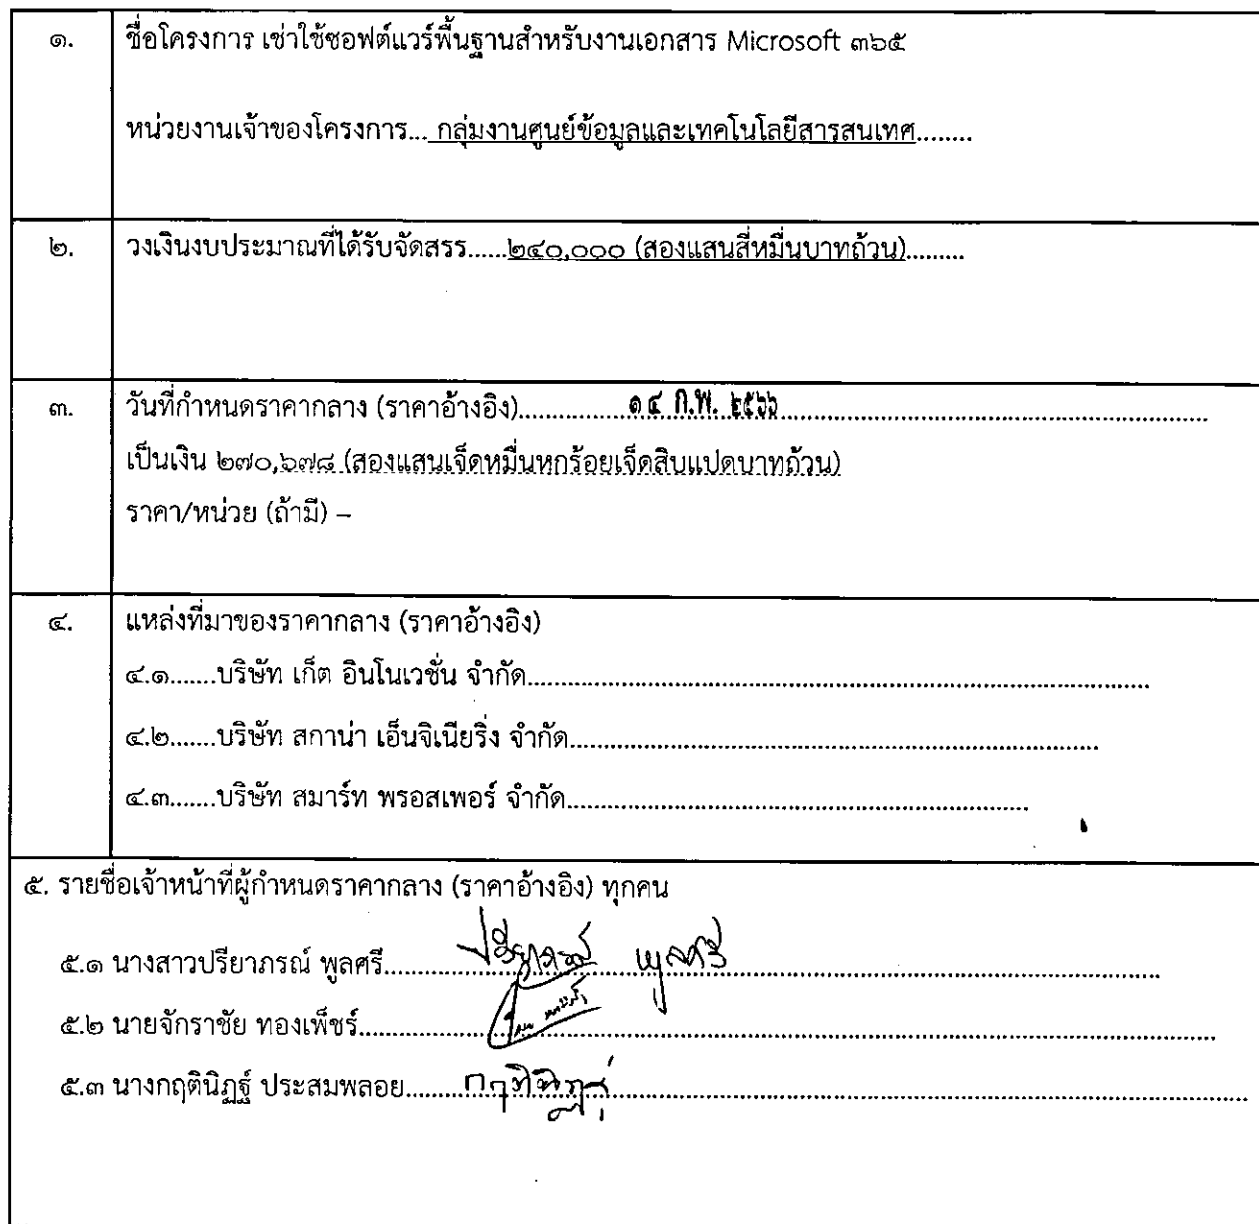 ๑. ชื่อโครงการ เช่าใช้ซอฟต์แวร์พื้นฐานสำหรับงานเอกสาร Microsoft ๓๖๕
หน่วยงานเจ้าของโครงการ... กลุ่มงานศูนย์ข้อมูลและเทคโนโลยีสารสนเทศ........
๒. วงเงินงบประมาณที่ได้รับจัดสรร......๒๔๐,๐๐๐ (สองแสนสี่หมื่นบาทถ้วน).........
๓. วันที่กำหนดราคากลาง (ราคาอ้างอิง)...............๑๔ ก.พ. ๒๕๖๖...............
เป็นเงิน ๒๗๐,๖๗๘ (สองแสนเจ็ดหมื่นหกร้อยเจ็ดสิบแปดบาทถ้วน)
ราคา/หน่วย (ถ้ามี) –
๔. แหล่งที่มาของราคากลาง (ราคาอ้างอิง)
๔.๑.......บริษัท เก็ต อินโนเวชั่น จำกัด...............
๔.๒.......บริษัท สกาน่า เอ็นจิเนียริ่ง จำกัด...............
๔.๓.......บริษัท สมาร์ท พรอสเพอร์ จำกัด...............
๕. รายชื่อเจ้าหน้าที่ผู้กำหนดราคากลาง (ราคาอ้างอิง) ทุกคน
๕.๑ นางสาวปรียาภรณ์ พูลศรี............... ปรียาภรณ์ พูลศรี
๕.๒ นายจักราชัย ทองเพ็ชร์...............
๕.๓ นางกฤตินิฏฐ์ ประสมพลอย............... กฤตินิฏฐ์